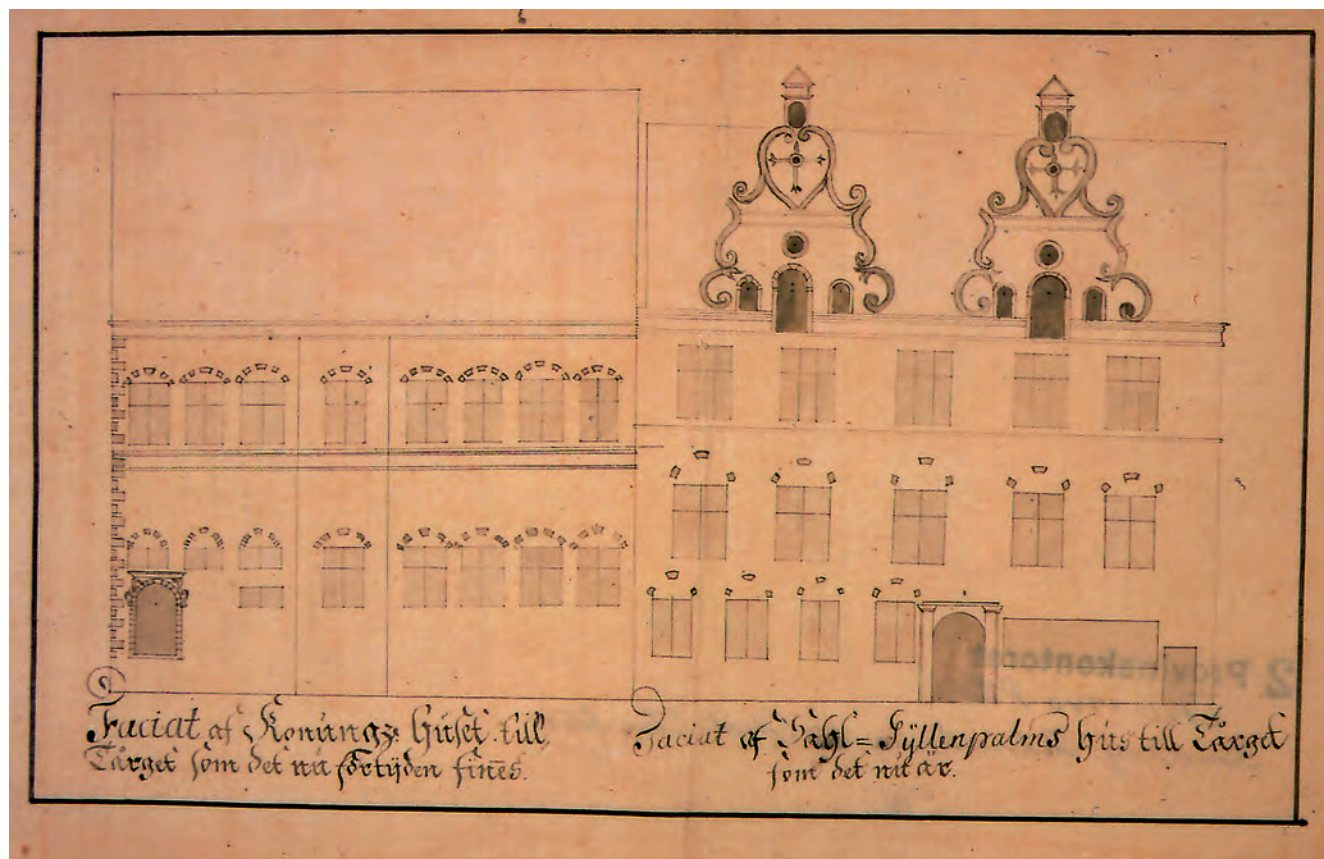 Faciat af Konungz Huset till
Tårget som det nuförtijden finēs.
Faciat af Sahl= Gyllenpalms hus till Tårget
som det nu är.
2 Provinskontoret